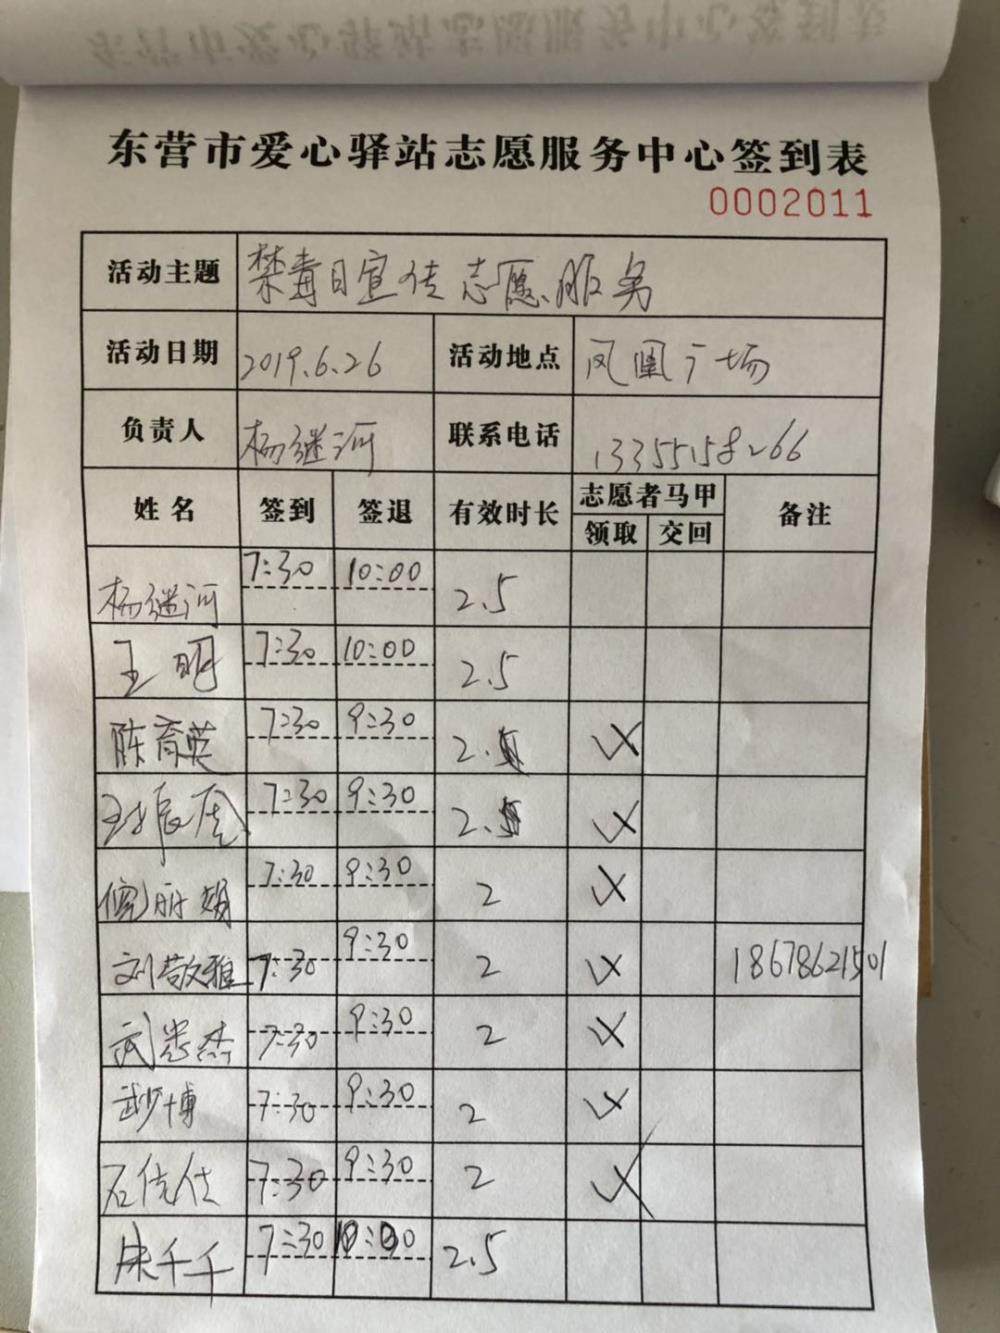 东营市爱心驿站志愿服务中心签到表
0002011
活动主题 禁毒日宣传志愿服务
活动日期 2019.6.26 活动地点 凤凰广场
负责人 杨继河 联系电话 13355158266
姓名 签到 签退 有效时长 志愿者马甲 备注
领取 交回
杨继河 7:30 10:00 2.5
王明 7:30 10:00 2.5
陈育英 7:30 9:30 2.
7:30 9:30 2.
倪丽娟 7:30 9:30 2
刘敬雅 7:30 9:30 2 18678621501
武忠杰 7:30 9:30 2
武少博 7:30 9:30 2
石信仕 7:30 9:30 2
朱千千 7:30 10:00 2.5